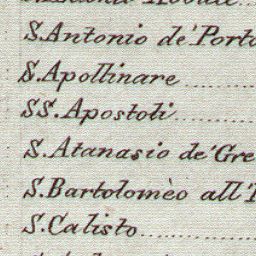 S. Antonio de' Porto
S. Apollinare
SS. Apostoli
S. Atanasio de' Gre
S. Bartolomèo all'
S. Calisto